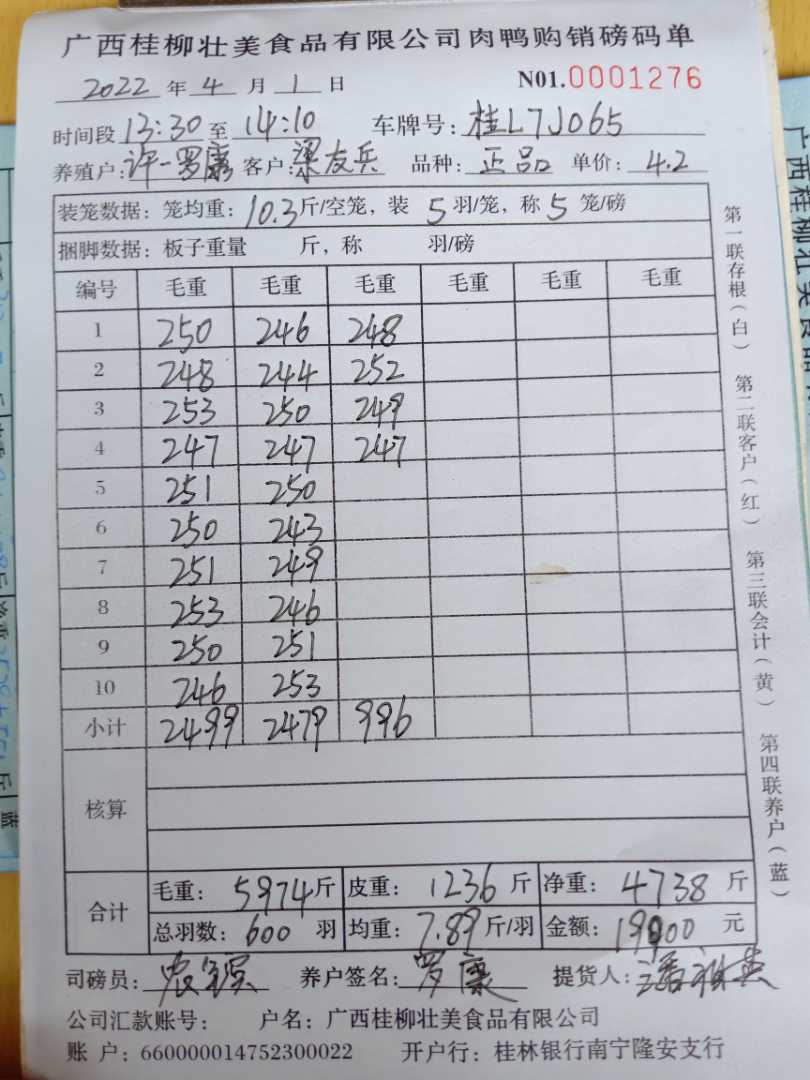 广西桂柳壮美食品有限公司肉鸭购销磅码单
2022 年 4 月 1 日 N01.0001276
时间段 13:30 至 14:10 车牌号: 桂L7J065
养殖户: 许一罗康 客户: 梁友兵 品种: 正品 单价: 4.2
装笼数据: 笼均重: 10.3 斤/空笼, 装 5 羽/笼, 称 5 笼/磅
捆脚数据: 板子重量 斤, 称 羽/磅
编号 毛重 毛重 毛重 毛重 毛重 毛重
1 250 246 248
2 248 244 252
3 253 250 249
4 247 247 247
5 251 250
6 250 243
7 251 249
8 253 246
9 250 251
10 246 253
小计 2499 2479 996
核算
合计 毛重: 5974 斤 皮重: 1236 斤 净重: 4738 斤
总羽数: 600 羽 均重: 7.89 斤/羽 金额: 19900 元
司磅员: 养户签名: 罗康 提货人:
公司汇款账号: 户名: 广西桂柳壮美食品有限公司
账 户: 660000014752300022 开户行: 桂林银行南宁隆安支行
第一联存根(白) 第二联客户(红) 第三联会计(黄) 第四联养户(蓝)